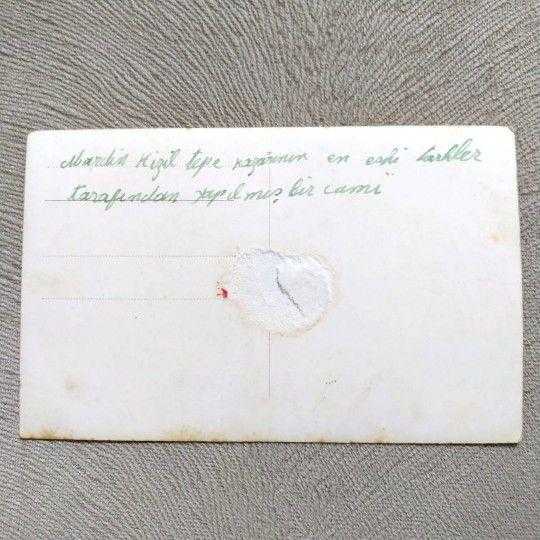 Mardin Kızıl tepe kazasının en eski
tarafından yapılmış bir cami